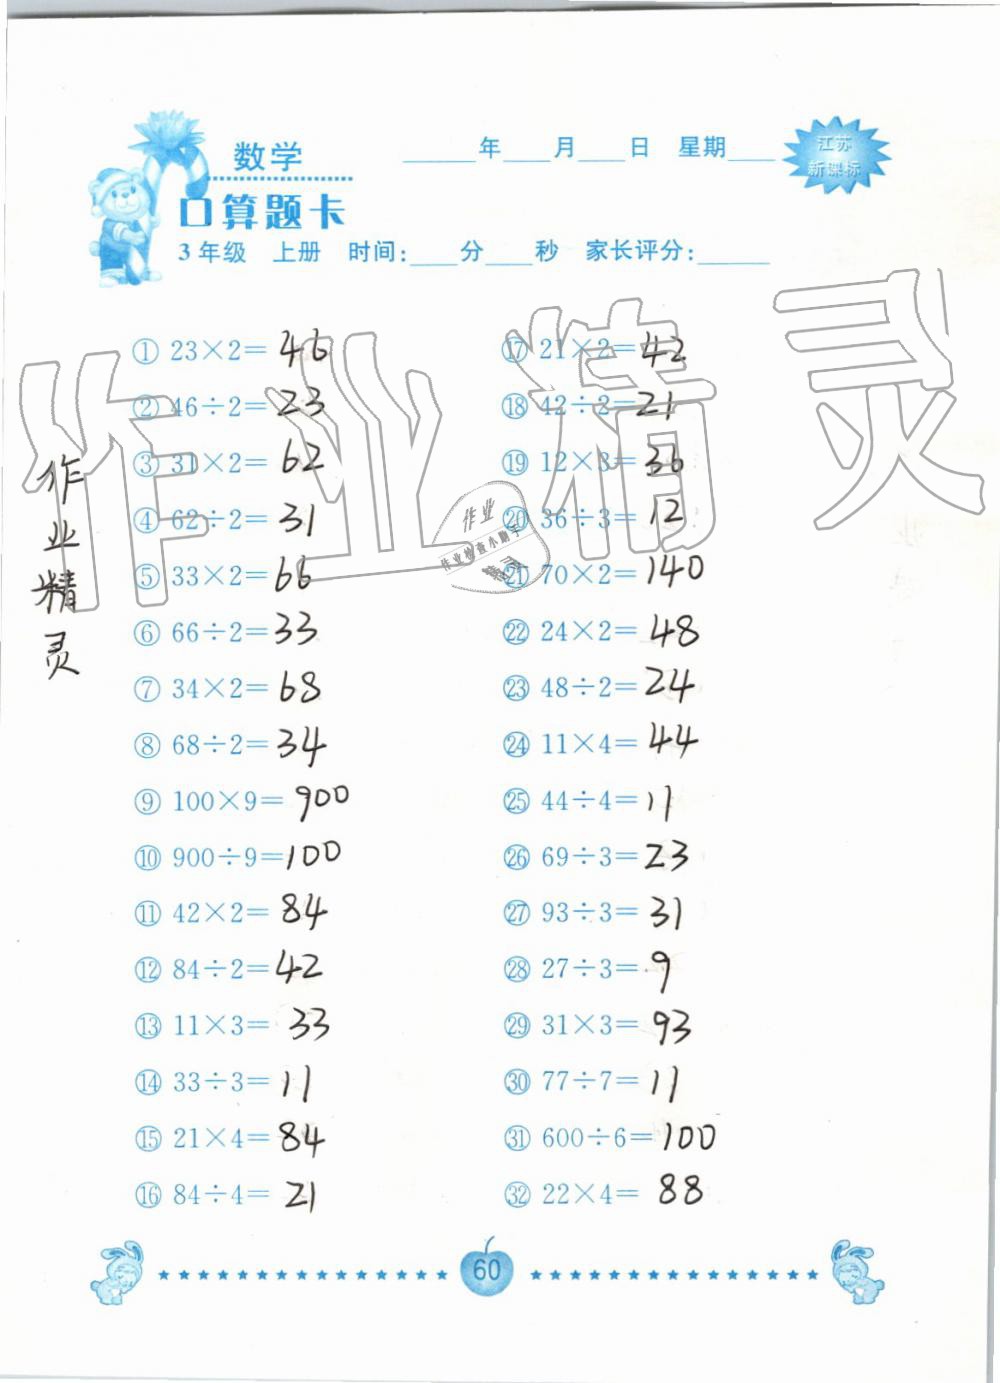 数学
____年____月____日 星期____
江苏
新课标
口算题卡
3年级 上册 时间:____分____秒 家长评分:______
① 23×2= 46
② 46÷2= 23
③ 31×2= 62
④ 62÷2= 31
⑤ 33×2= 66
⑥ 66÷2= 33
⑦ 34×2= 68
⑧ 68÷2= 34
⑨ 100×9= 900
⑩ 900÷9= 100
⑪ 42×2= 84
⑫ 84÷2= 42
⑬ 11×3= 33
⑭ 33÷3= 11
⑮ 21×4= 84
⑯ 84÷4= 21
⑰ 21×2= 42
⑱ 42÷2= 21
⑲ 12×3= 36
⑳ 36÷3= 12
㉑ 70×2= 140
㉒ 24×2= 48
㉓ 48÷2= 24
㉔ 11×4= 44
㉕ 44÷4= 11
㉖ 69÷3= 23
㉗ 93÷3= 31
㉘ 27÷3= 9
㉙ 31×3= 93
㉚ 77÷7= 11
㉛ 600÷6= 100
㉜ 22×4= 88
作业精灵
作业精灵
作业
作业检查小助手
精灵
60